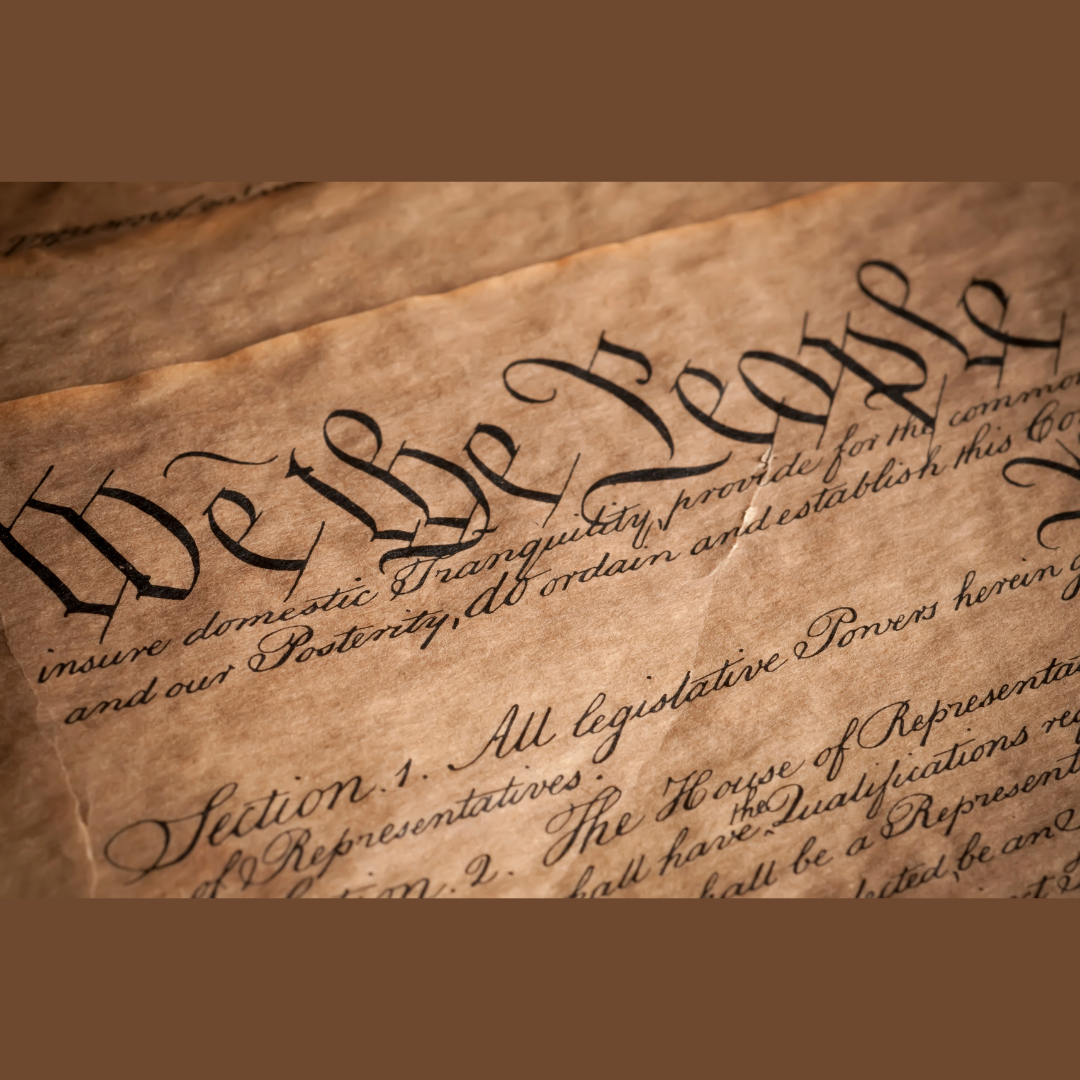 We the People
insure domestic Tranquility, provide for the common
and our Posterity, do ordain and establish this
Section. 1. All legislative Powers herein
of Representatives.
2. The House of
shall have the Qualifications
shall be a
be an